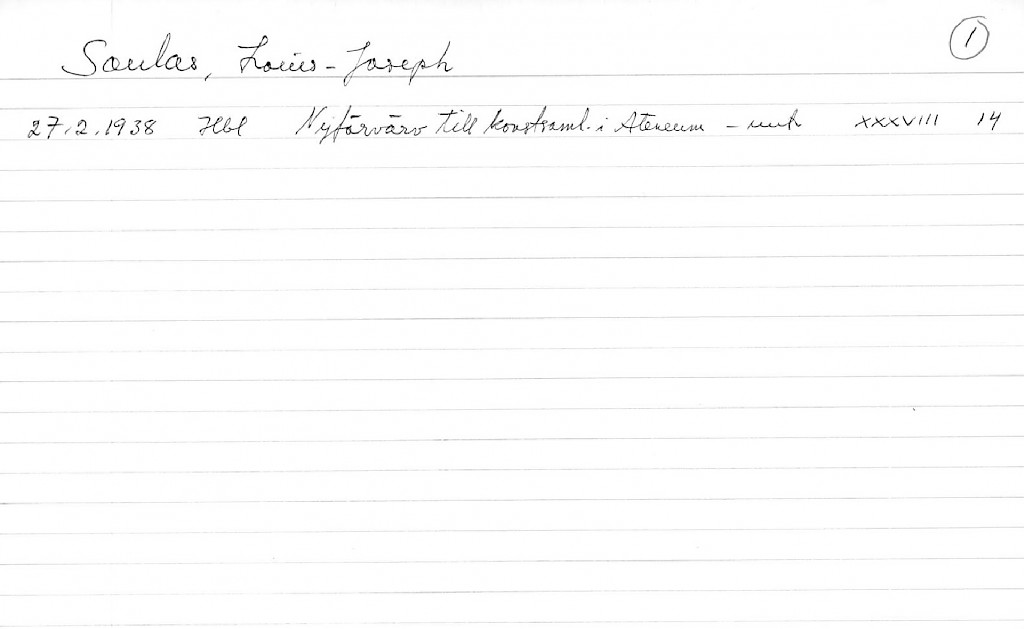 Soulas, Louis-Joseph
1
27.2.1938 Hbl Nyförvärv till konstsaml. i Ateneum - XXXVIII 14